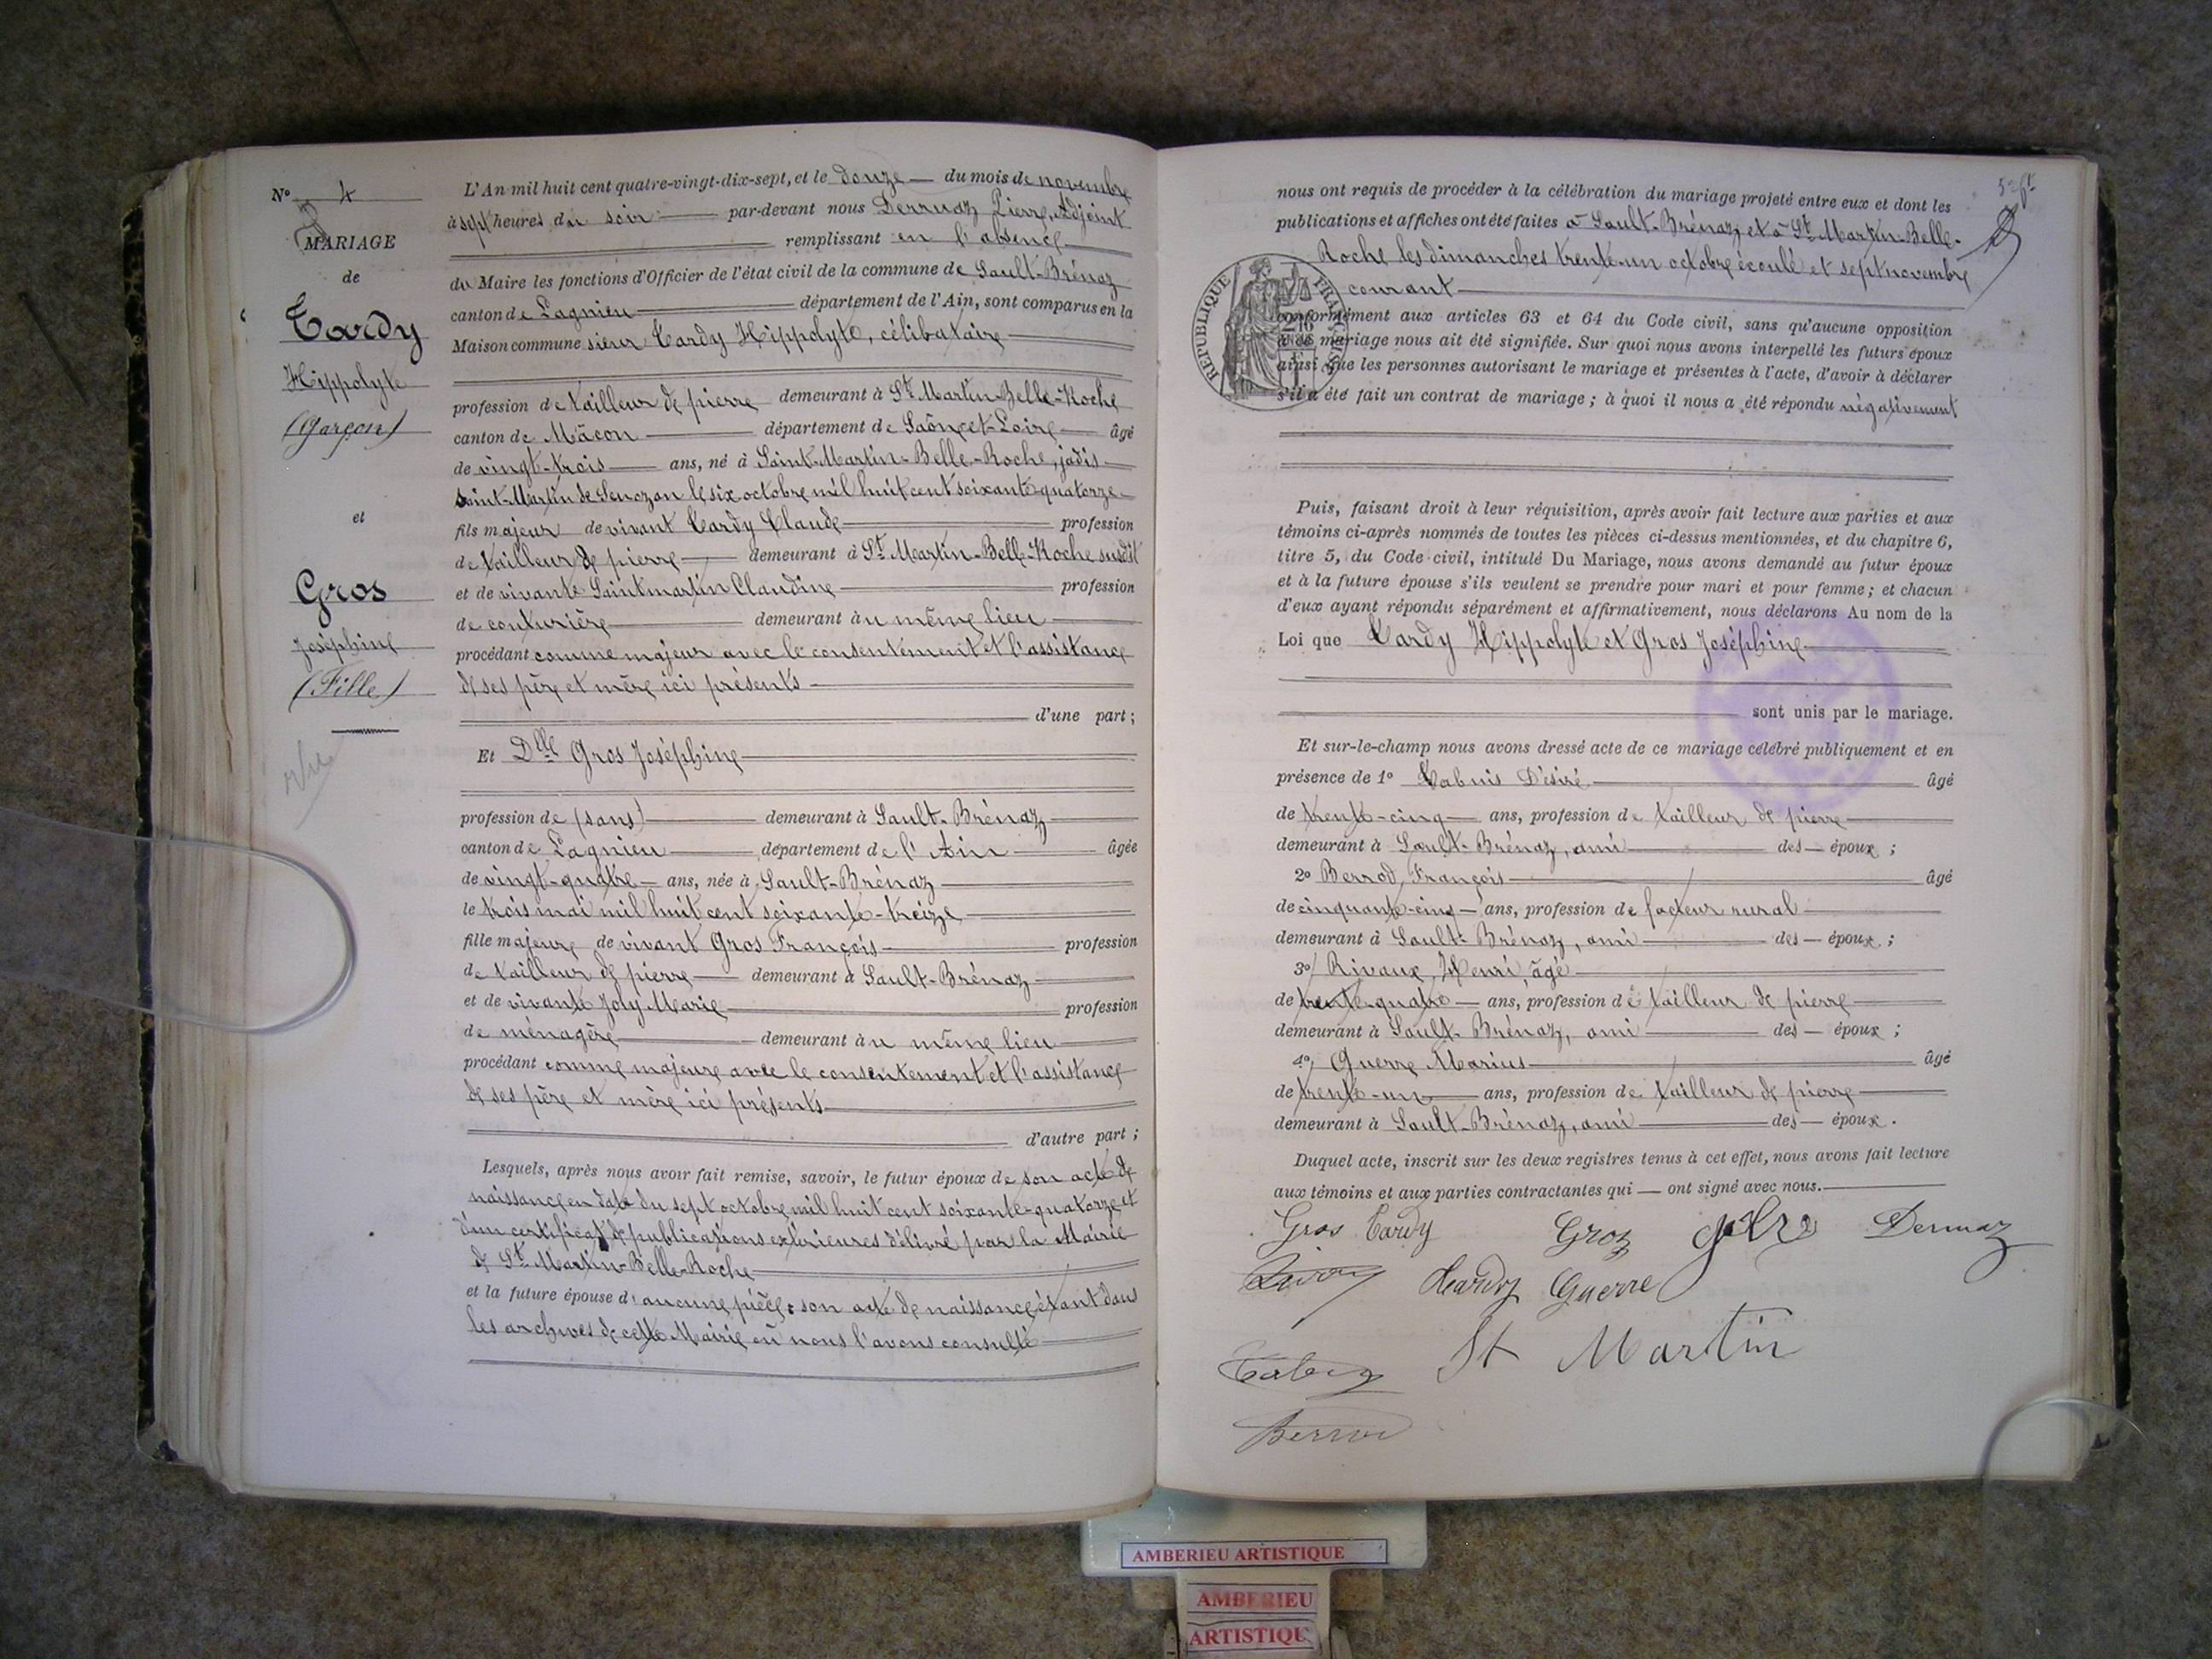 N° 4
MARIAGE
de
Tardy
Hippolyte
(Garçon)
et
Gros
Joséphine
(Fille)
L'An mil huit cent quatre-vingt-dix-sept, et le douze du mois de novembre
à sept heures du soir par-devant nous Derruaz Pierre, Adjoint
remplissant en l'absence
du Maire les fonctions d'Officier de l'état civil de la commune de Sault-Brénaz
canton de Lagnieu département de l'Ain, sont comparus en la
Maison commune sieur Tardy Hippolyte, célibataire
profession de tailleur de pierre demeurant à St Martin-Belle-Roche
canton de Mâcon département de Saône-et-Loire âgé
de vingt-trois ans, né à Saint-Martin-Belle-Roche, jadis
Saint-Martin de Senozan le six octobre mil huit cent soixante-quatorze
fils majeur de vivant Tardy Claude profession
de tailleur de pierre demeurant à St Martin-Belle-Roche susdit
et de vivante Saintmartin Claudine profession
de couturière demeurant àu même lieu
procédant comme majeur avec le consentement et l'assistance
de ses père et mère ici présents
d'une part ;
Et Dlle Gros Joséphine
profession de (sans) demeurant à Sault-Brénaz
canton de Lagnieu département de l'Ain âgée
de vingt-quatre ans, née à Sault-Brénaz
le trois mai mil huit cent soixante-treize
fille majeure de vivant Gros François profession
de tailleur de pierre demeurant à Sault-Brénaz
et de vivante Joly Marie profession
de ménagère demeurant àu même lieu
procédant comme majeure avec le consentement et l'assistance
de ses père et mère ici présents
d'autre part ;
Lesquels, après nous avoir fait remise, savoir, le futur époux de son acte de
naissance en date du sept octobre mil huit cent soixante-quatorze et
d'un certificat de publications extérieures délivré par la Mairie
de St Martin-Belle-Roche
et la future épouse d'aucune pièce : son acte de naissance étant dans
les archives de cette Mairie où nous l'avons consulté
nous ont requis de procéder à la célébration du mariage projeté entre eux et dont les
publications et affiches ont été faites à Sault-Brénaz et à St Martin-Belle-
Roche les dimanches trente-un octobre écoulé et sept novembre
courant
RÉPUBLIQUE FRANÇAISE
conformément aux articles 63 et 64 du Code civil, sans qu'aucune opposition
à ce mariage nous ait été signifiée. Sur quoi nous avons interpellé les futurs époux
ainsi que les personnes autorisant le mariage et présentes à l'acte, d'avoir à déclarer
s'il a été fait un contrat de mariage ; à quoi il nous a été répondu négativement
Puis, faisant droit à leur réquisition, après avoir fait lecture aux parties et aux
témoins ci-après nommés de toutes les pièces ci-dessus mentionnées, et du chapitre 6,
titre 5, du Code civil, intitulé Du Mariage, nous avons demandé au futur époux
et à la future épouse s'ils veulent se prendre pour mari et pour femme ; et chacun
d'eux ayant répondu séparément et affirmativement, nous déclarons Au nom de la
Loi que Tardy Hippolyte et Gros Joséphine
sont unis par le mariage.
Et sur-le-champ nous avons dressé acte de ce mariage célébré publiquement et en
présence de 1° Tabuis Désiré âgé
de trente-cinq ans, profession de tailleur de pierre
demeurant à Sault-Brénaz, ami des époux ;
2° Berrod, François âgé
de cinquante-cinq ans, profession de facteur rural
demeurant à Sault-Brénaz, ami des époux ;
3° Rivaux, Henri, âgé
de trente-quatre ans, profession de tailleur de pierre
demeurant à Sault-Brénaz, ami des époux ;
4° Guerre Marius âgé
de trente-un ans, profession de tailleur de pierre
demeurant à Sault-Brénaz, ami des époux.
Duquel acte, inscrit sur les deux registres tenus à cet effet, nous avons fait lecture
aux témoins et aux parties contractantes qui ont signé avec nous.
Gros Tardy Gros Derruaz
Guerre
St Martin
AMBERIEU ARTISTIQUE
AMBERIEU
ARTISTIQUE